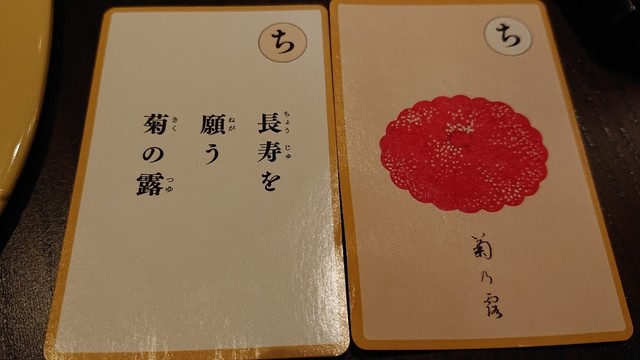 ち
長寿を
ちょうじゅ
願う
ねが
菊の露
きく つゆ
ち
菊乃露